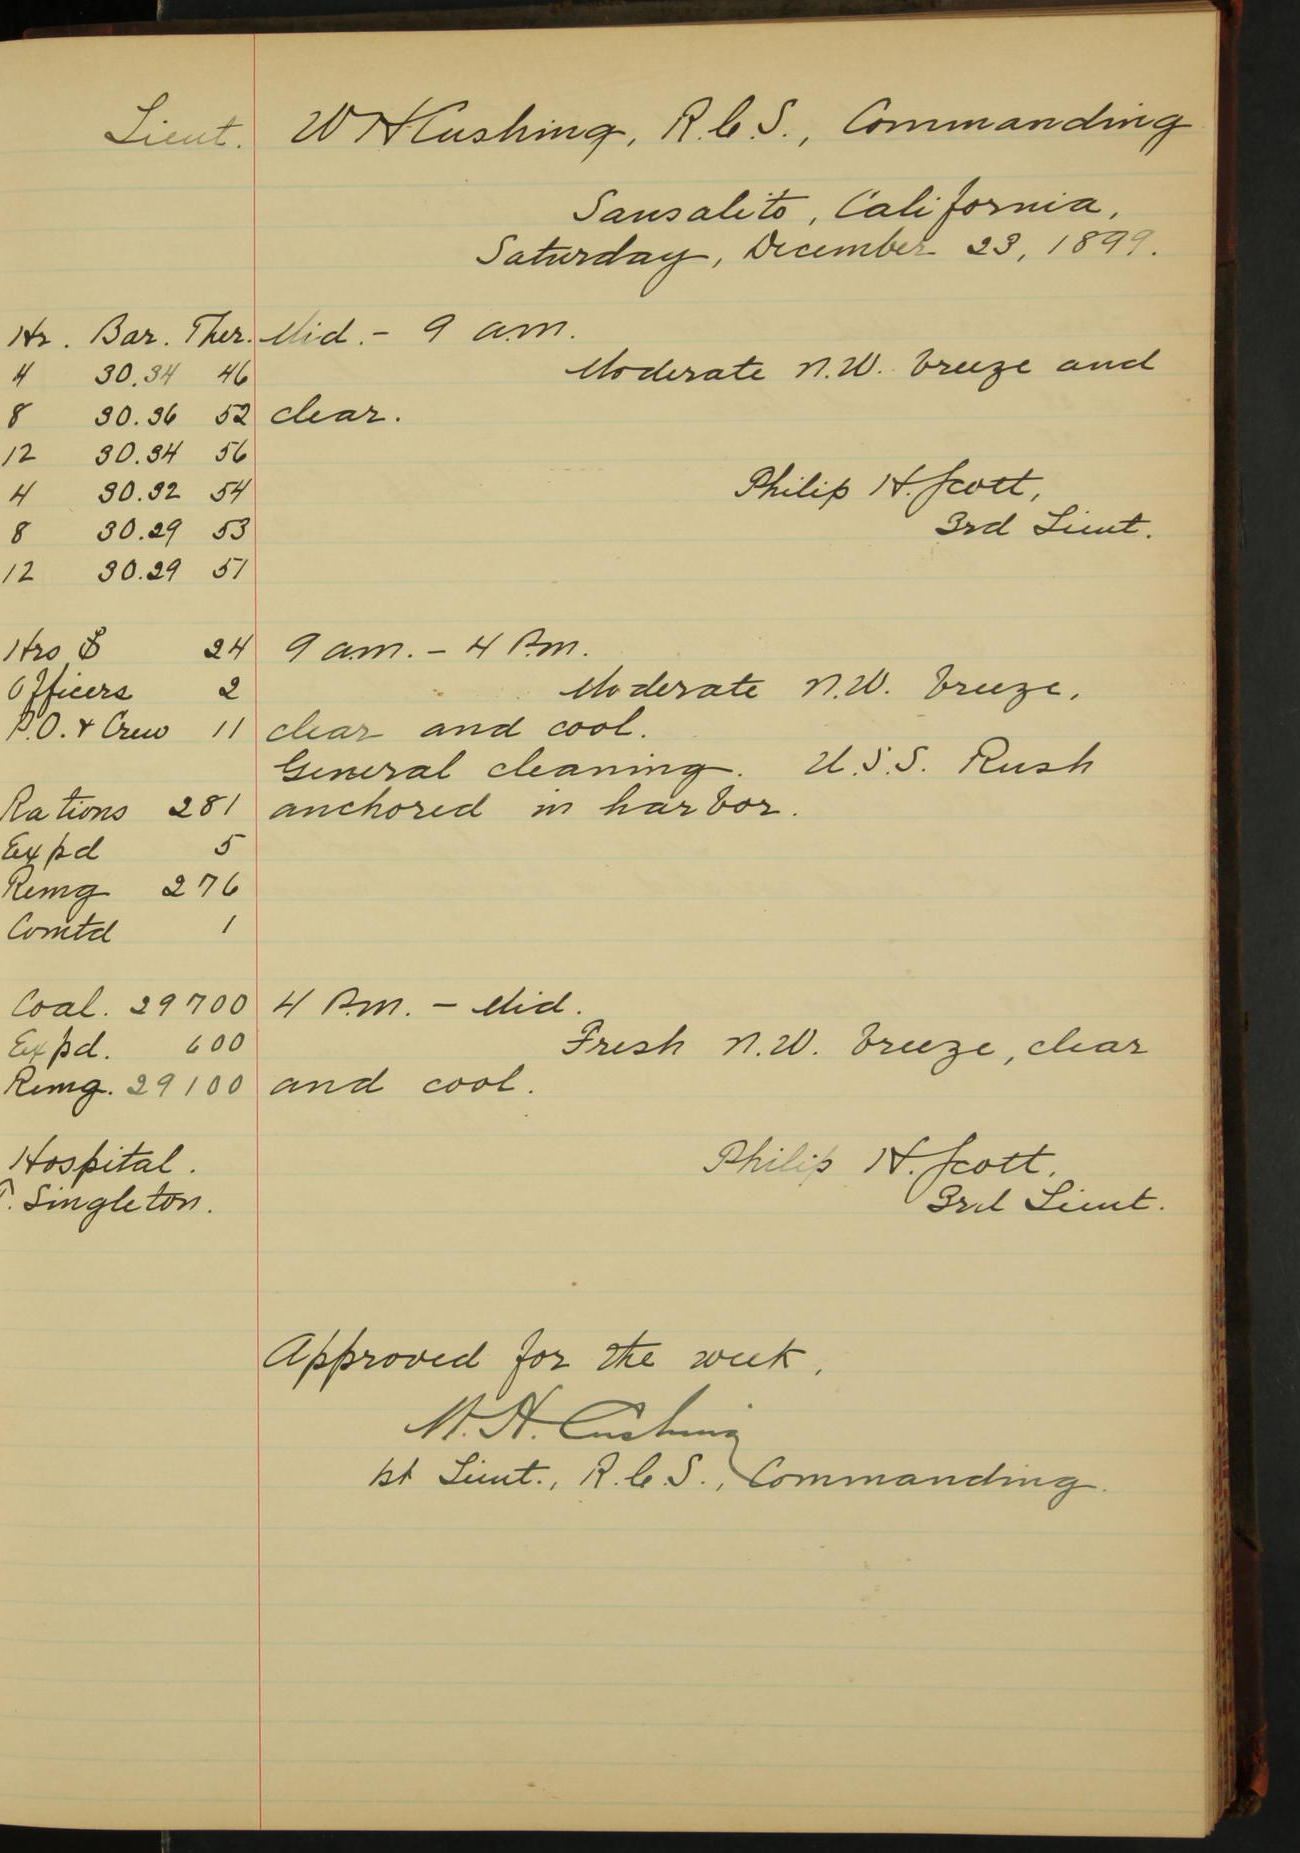 Lieut. W H Cushing, R.C.S., Commanding
Sausalito, California,
Saturday, December 23, 1899.
Hr. Bar. Ther. Mid. - 9 a.m.
4 30.34 46 Moderate N.W. breeze and
8 30.36 52 clear.
12 30.34 56
4 30.32 54 Philip H. Scott,
8 30.29 53 3rd Lieut.
12 30.29 51
Hrs 24 9 a.m. - 4 P.m.
Officers 2 Moderate N.W. breeze,
P.O. & Crew 11 clear and cool.
General cleaning. U.S.S. Rush
Rations 281 anchored in harbor.
Expd 5
Remg 276
Comtd 1
Coal. 29700 4 P.m. - Mid.
Expd. 600 Fresh N.W. breeze, clear
Remg. 29100 and cool.
Hospital. Philip H. Scott.
Singleton. 3rd Lieut.
Approved for the week,
W. H. Cushing
1st Lieut., R.C.S., Commanding.